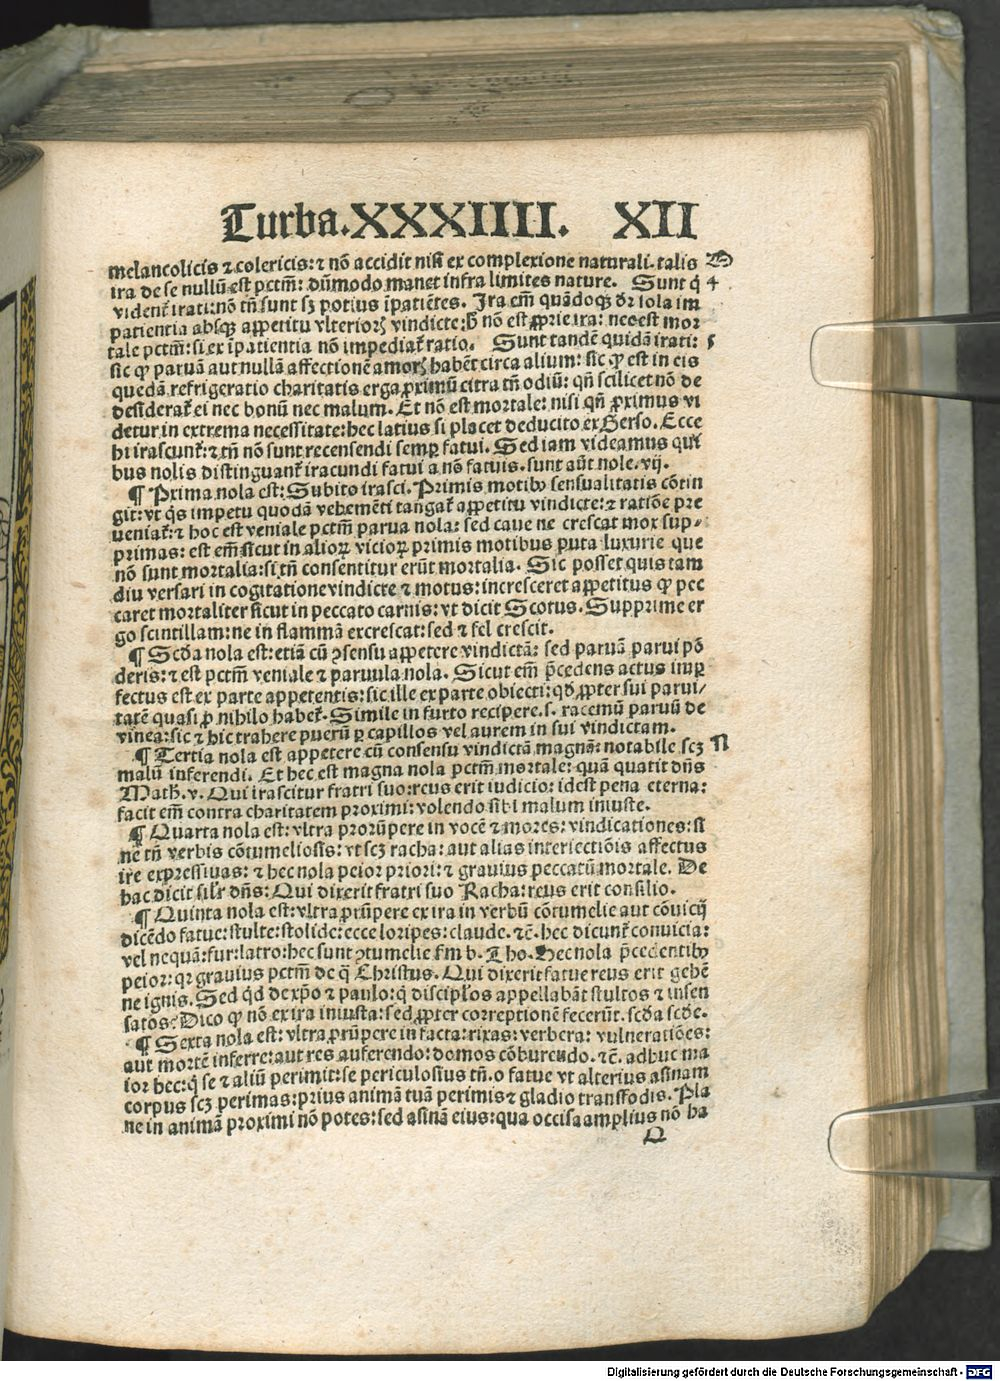 Turba.XXXIIII. XII
melancolicis ⁊ colericis: ⁊ nō accidit nisi ex complexione naturali. talis
ira de se nullū est pctm̄: dūmodo manet infra limites nature. Sunt q̄ 4
vident̄ irati: nō tn̄ sunt sꝫ potius īpatiētes. Ira em̄ quādoqꝫ dr̄ sola im
patientia absqꝫ appetitu vlterioris vindicte: hec nō est ꝓprie ira: nec est mor
tale pctm̄: si ex īpatientia nō impediat̄ ratio. Sunt tandē quidā irati: 5
sic ꝙ paruā aut nullā affectionē amoris habēt circa alium: sic ꝙ est in eis
quedā refrigeratio charitatis erga ꝓximū citra tn̄ odiū: qn̄ scilicet nō de
desiderat̄ ei nec bonū nec malum. Et nō est mortale: nisi qn̄ ꝓximus vi
detur in extrema necessitate: hec latius si placet deducito ex Gerso. Ecce
hi irascunt̄: ⁊ tn̄ nō sunt recensendi semꝑ fatui. Sed iam videamus qui
bus nolis distinguant̄ iracundi fatui a nō fatuis. sunt aūt nole. vij.
¶ Prima nola est: Subito irasci. Primis motibꝰ sensualitatis cōtin
git: vt q̄s impetu quodā vehemēti tangat̄ appetitu vindicte: ⁊ ratiōe pre
ueniat̄: ⁊ hoc est veniale pctm̄ parua nola: sed caue ne crescat mox sup-
primas: est em̄ sicut in alioꝝ vicioꝝ primis motibus puta luxurie que
nō sunt mortalia: si tn̄ consentitur erūt mortalia. Sic posset quis tam
diu versari in cogitatione vindicte ⁊ motus: incresceret appetitus ꝙ pec
caret mortaliter sicut in peccato carnis: vt dicit Scotus. Supprime er
go scintillam: ne in flammā excrescat: sed ⁊ fel crescit.
¶ Scḋa nola est: etiā cū ꝯsensu appetere vindictā: sed paruā parui pō
deris: ⁊ est pctm̄ veniale ⁊ paruula nola. Sicut em̄ p̄cedens actus imꝑ
fectus est ex parte appetentis: sic ille ex parte obiecti: qḋ ꝓpter sui parui/
tatē quasi ꝓ nihilo habet̄. Simile in furto recipere. s. racemū paruū de
vinea: sic ⁊ hic trahere puerū ꝑ capillos vel aurem in sui vindictam.
¶ Tertia nola est appetere cū consensu vindictā magnā: notabile scꝫ
malū inferendi. Et hec est magna nola pctm̄ mortale: quā quatit dn̄s
Math. v. Qui irascitur fratri suo: reus erit iudicio: idest pena eterna:
facit em̄ contra charitatem proximi: volendo sibi malum iniuste.
¶ Quarta nola est: vltra prorūpere in vocē ⁊ mores: vindicationes: si
ne tn̄ verbis cōtumeliosis: vt scꝫ racha: aut alias interiectiōis affectus
ire expressiuas: ⁊ hec nola peior priori: ⁊ grauius peccatū mortale. De
hac dicit silr̄ dn̄s: Qui dixerit fratri suo Racha: reus erit consilio.
¶ Quinta nola est: vltra ꝓrūpere ex ira in verbū cōtumelie aut cōuicij
dicēdo fatue: stulte: stolide: ecce loripes: claude. ⁊c̄. hec dicunt̄ conuicia:
vel nequā: fur: latro: hec sunt ꝯtumelie ẜm b. Tho. Hec nola p̄cedentibꝰ
peior: qꝛ grauius pctm̄ de q̄ Christus. Qui dixerit fatue reus erit gehē
ne ignis. Sed qḋ de xp̄o ⁊ paulo: q̄ discipl̄os appellabāt stultos ⁊ insen
satos? Dico ꝙ nō ex ira iniusta: sed ꝓpter correptionē fecerūt. scḋa scḋe.
¶ Sexta nola est: vltra ꝓrūpere in facta: rixas: verbera: vulneratiōes:
aut mortē inferre: aut res auferendo: domos cōburendo. ⁊c̄. adhuc ma
ior hec: q̄ se ⁊ aliū perimit: se periculosius tn̄. o fatue vt alterius asinam
corpus scꝫ perimas: prius animā tuā perimis ⁊ gladio transfodis. Pla
ne in animā proximi nō potes: sed asinā eius: qua occisa amplius nō ha
Q
Digitalisierung gefördert durch die Deutsche Forschungsgemeinschaft - DFG